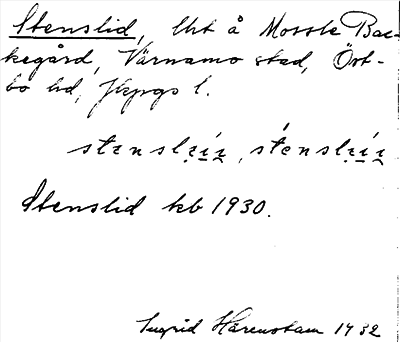 Stenslid, lht å Mossle Bac-
kegård, Värnamo stad, Öst-
bo hd, Jkpgs l.
Stenslid kb 1930.
Ingrid Härenstam 1932